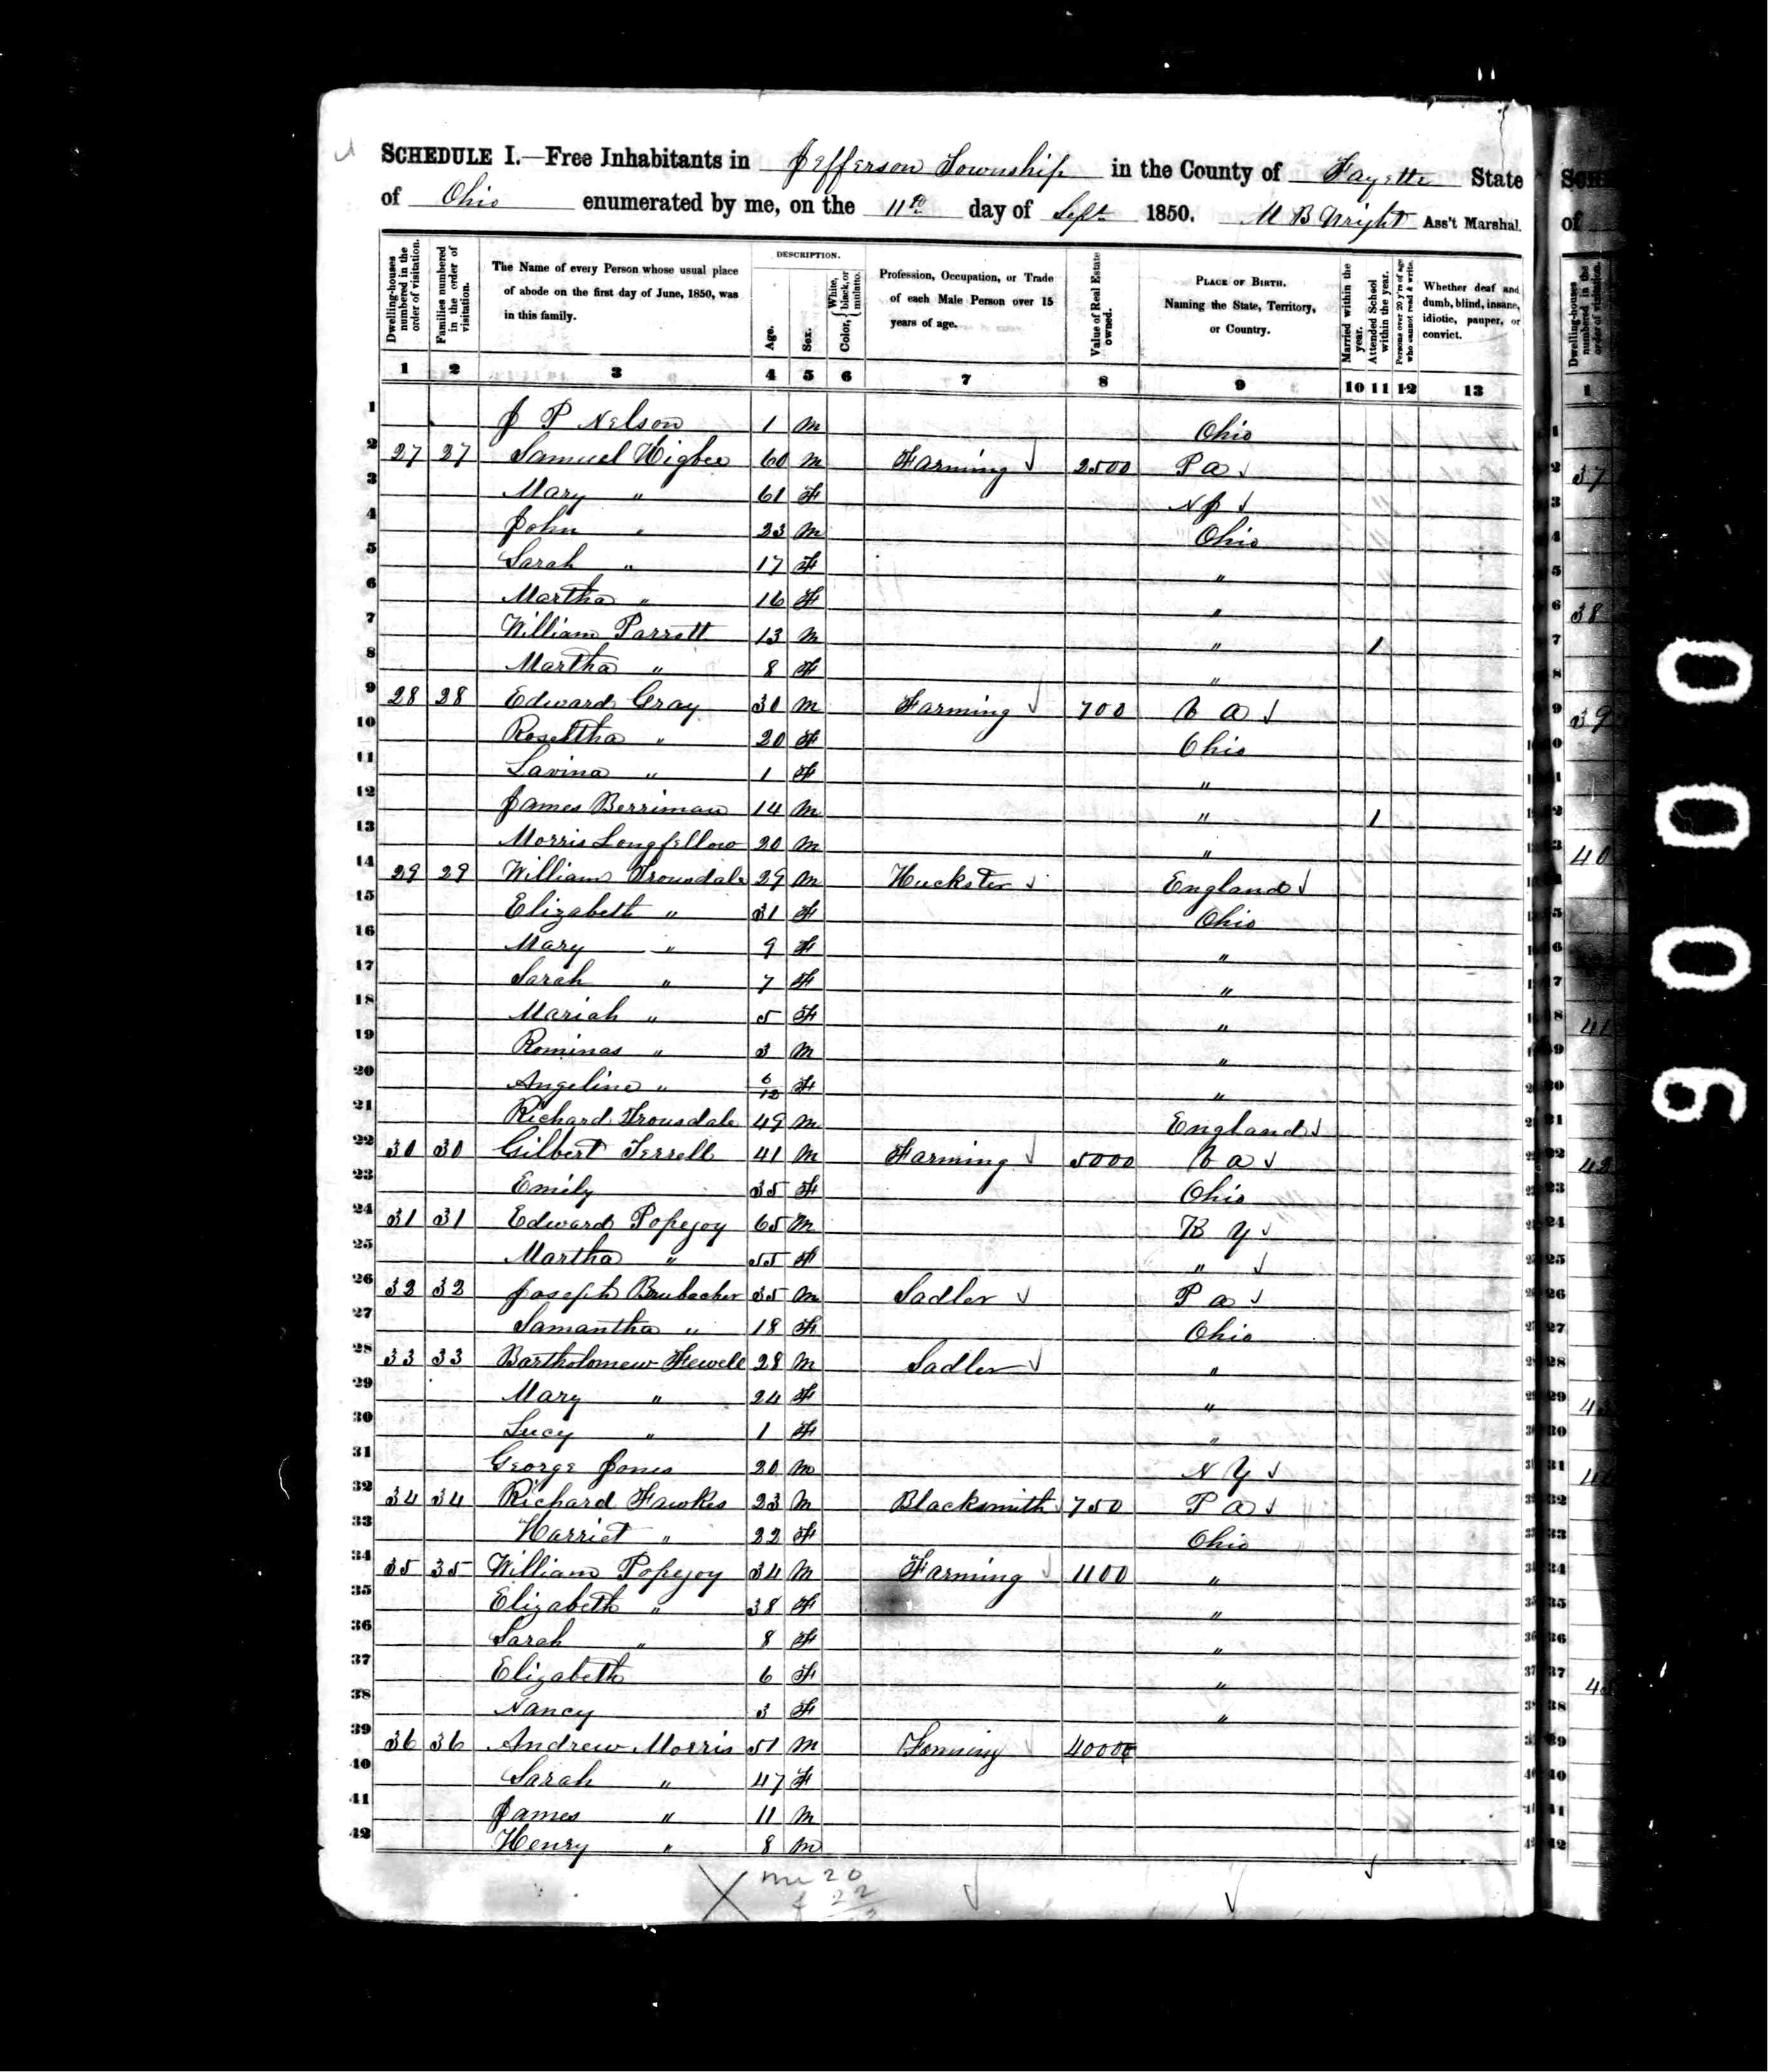 SCHEDULE I.—Free Inhabitants in Jefferson Township in the County of Fayette State
of Ohio enumerated by me, on the 11th day of Sept 1850. Wright Ass't Marshal.
Dwelling-houses numbered in the order of visitation.
Families numbered in the order of visitation.
The Name of every Person whose usual place of abode on the first day of June, 1850, was in this family.
DESCRIPTION.
Age.
Sex.
Color, White, black, or mulatto.
Profession, Occupation, or Trade of each Male Person over 15 years of age.
Value of Real Estate owned.
PLACE OF BIRTH. Naming the State, Territory, or Country.
Married within the year.
Attended School within the year.
Persons over 20 y'rs of age who cannot read & write.
Whether deaf and dumb, blind, insane, idiotic, pauper, or convict.
1 2 3 4 5 6 7 8 9 10 11 12 13
1 J P Nelson 1 M Ohio
2 27 27 Samuel Higbee 60 M Farming 2500 Pa
3 Mary " 61 F NJ
4 John " 23 M Ohio
5 Sarah " 17 F "
6 Martha " 16 F "
7 William Parrett 13 M " 1
8 Martha " 8 F "
9 28 28 Edward Gray 31 M Farming 700 Va
10 Roseltha " 20 F Ohio
11 Lavina " 1 F "
12 James Berriman 14 M " 1
13 Morris Longfellow 20 M "
14 29 29 William Trousdale 29 M Huckster England
15 Elizabeth " 31 F Ohio
16 Mary " 9 F "
17 Sarah " 7 F "
18 Mariah " 5 F "
19 Rominas " 3 M "
20 Angeline " 6/12 F "
21 Richard Trousdale 49 M England
22 30 30 Gilbert Terrell 41 M Farming 5000 Va
23 Emily 35 F Ohio
24 31 31 Edward Popejoy 65 M Ky
25 Martha " 55 F "
26 32 32 Joseph Brubacher 35 M Sadler Pa
27 Samantha " 18 F Ohio
28 33 33 Bartholomew Fewell 28 M Sadler "
29 Mary " 24 F "
30 Lucy " 1 F "
31 George Jones 20 M NY
32 34 34 Richard Fawkes 23 M Blacksmith 750 Pa
33 Harriet " 22 F Ohio
34 35 35 William Popejoy 34 M Farming 1100 "
35 Elizabeth " 38 F "
36 Sarah " 8 F "
37 Elizabeth 6 F "
38 Nancy 3 F "
39 36 36 Andrew Morris 51 M Farming 4000
40 Sarah " 47 F
41 James " 11 M
42 Henry " 8 M
m 20
f 22
37
38
39
40
41
42
90006